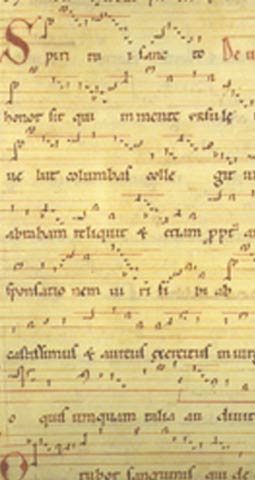 Spiri tu i sanc to De u
honor sit qui in mente ursule
ue lut columbas colle git ui
abraham reliquit & etiam ꝓpt̄ a
sponsatio nem ui ri si bi ab
castissimus & aureus exercitus in uirg
o quis umquam talia au diuit
O rubor sanguinis qui de